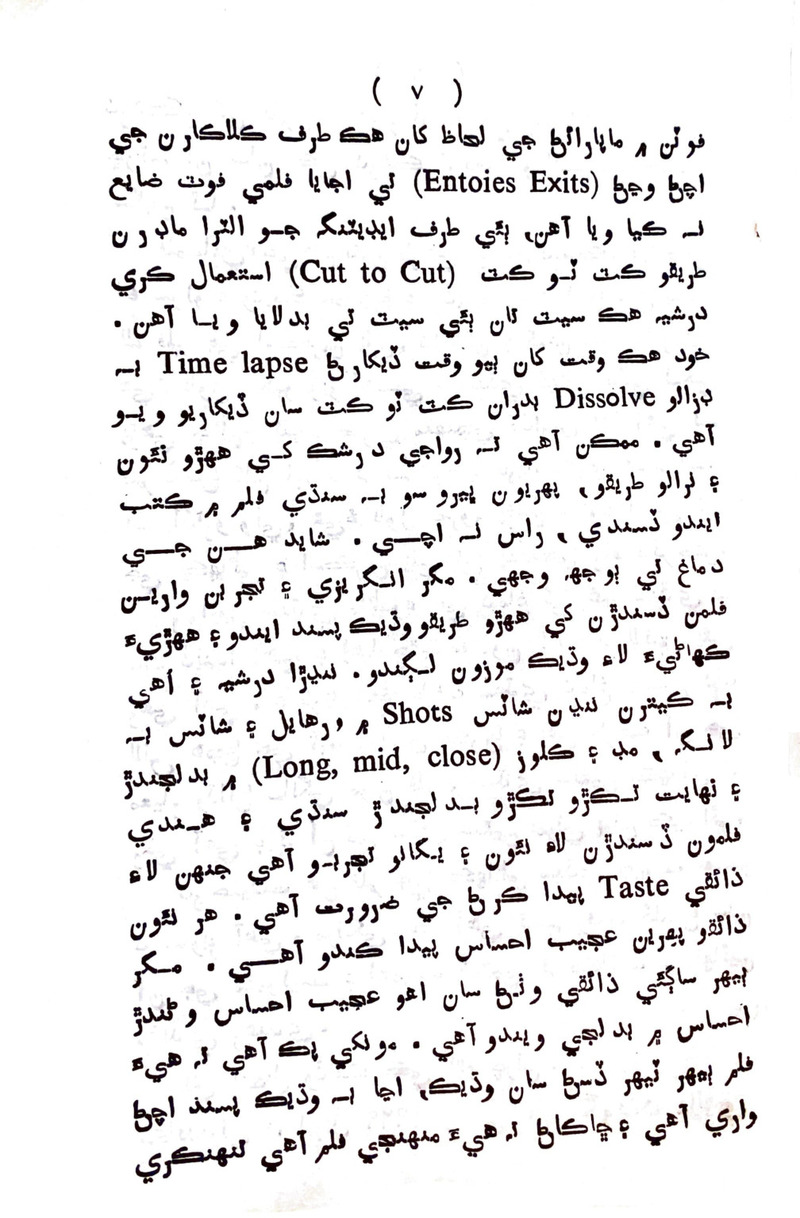 ( ٧ )
فوٽن ۾ ماپارائڻ جي لحاظ کان هڪ طرف ڪلاڪارن جي
اچڻ وڃڻ (Entoies Exits) تي اجايا فلمي فوٽ ضايع
نہ ڪيا ويا آهن، ٻئي طرف ايڊيٽنگ جو الٽرا ماڊرن
طريقو ڪٽ ٽو ڪٽ (Cut to Cut) استعمال ڪري
درشيہ هڪ سيٽ تان ٻئي سيٽ تي بدلايا ويا آهن.
خود هڪ وقت کان ٻيو وقت ڏيکارڻ Time lapse بہ
ڊزالو Dissolve بدران ڪٽ ٽو ڪٽ سان ڏيکاريو ويو
آهي. ممڪن آهي تہ رواجي درشڪ کي ههڙو نئون
۽ نرالو طريقو، پهريون ڀيرو سو بہ سنڌي فلم ۾ ڪتب
ايندو ڏسندي، راس نہ اچي. شايد هن جي
دماغ تي ٻوجهہ وجهي. مگر انگريزي ۽ تجربن وارين
فلمن ڏسندڙن کي ههڙو طريقو وڌيڪ پسند ايندو ۽ ههڙيءَ
ڪهاڻيءَ لاءِ وڌيڪ موزون لڳندو. ننڍڙا درشيہ ۽ اهي
بہ ڪيترن ننڍن شاٽس Shots ۾ ورهايل ۽ شاٽس بہ
لانگ، مڊ ۽ ڪلوز (Long, mid, close) ۾ بدلجندڙ
۽ نهايت تڪڙو تڪڙو بدلجندڙ سنڌي ۽ هندي
فلمون ڏسندڙن لاءِ نئون ۽ يگانو تجربو آهي جنهن لاءِ
ذائقي Taste پيدا ڪرڻ جي ضرورت آهي. هر نئون
ذائقو پهرين عجيب احساس پيدا ڪندو آهي. مگر
ٻيهر ساڳئي ذائقي وٺڻ سان اهو عجيب احساس وڻندڙ
احساس ۾ بدلجي ويندو آهي. مونکي پڪ آهي تہ هيءَ
فلم ٻيهر ٽيهر ڏسڻ سان وڌيڪ، اڃا بہ وڌيڪ پسند اچڻ
واري آهي ۽ ڇاڪاڻ تہ هيءَ منهنجي فلم آهي تنهنڪري